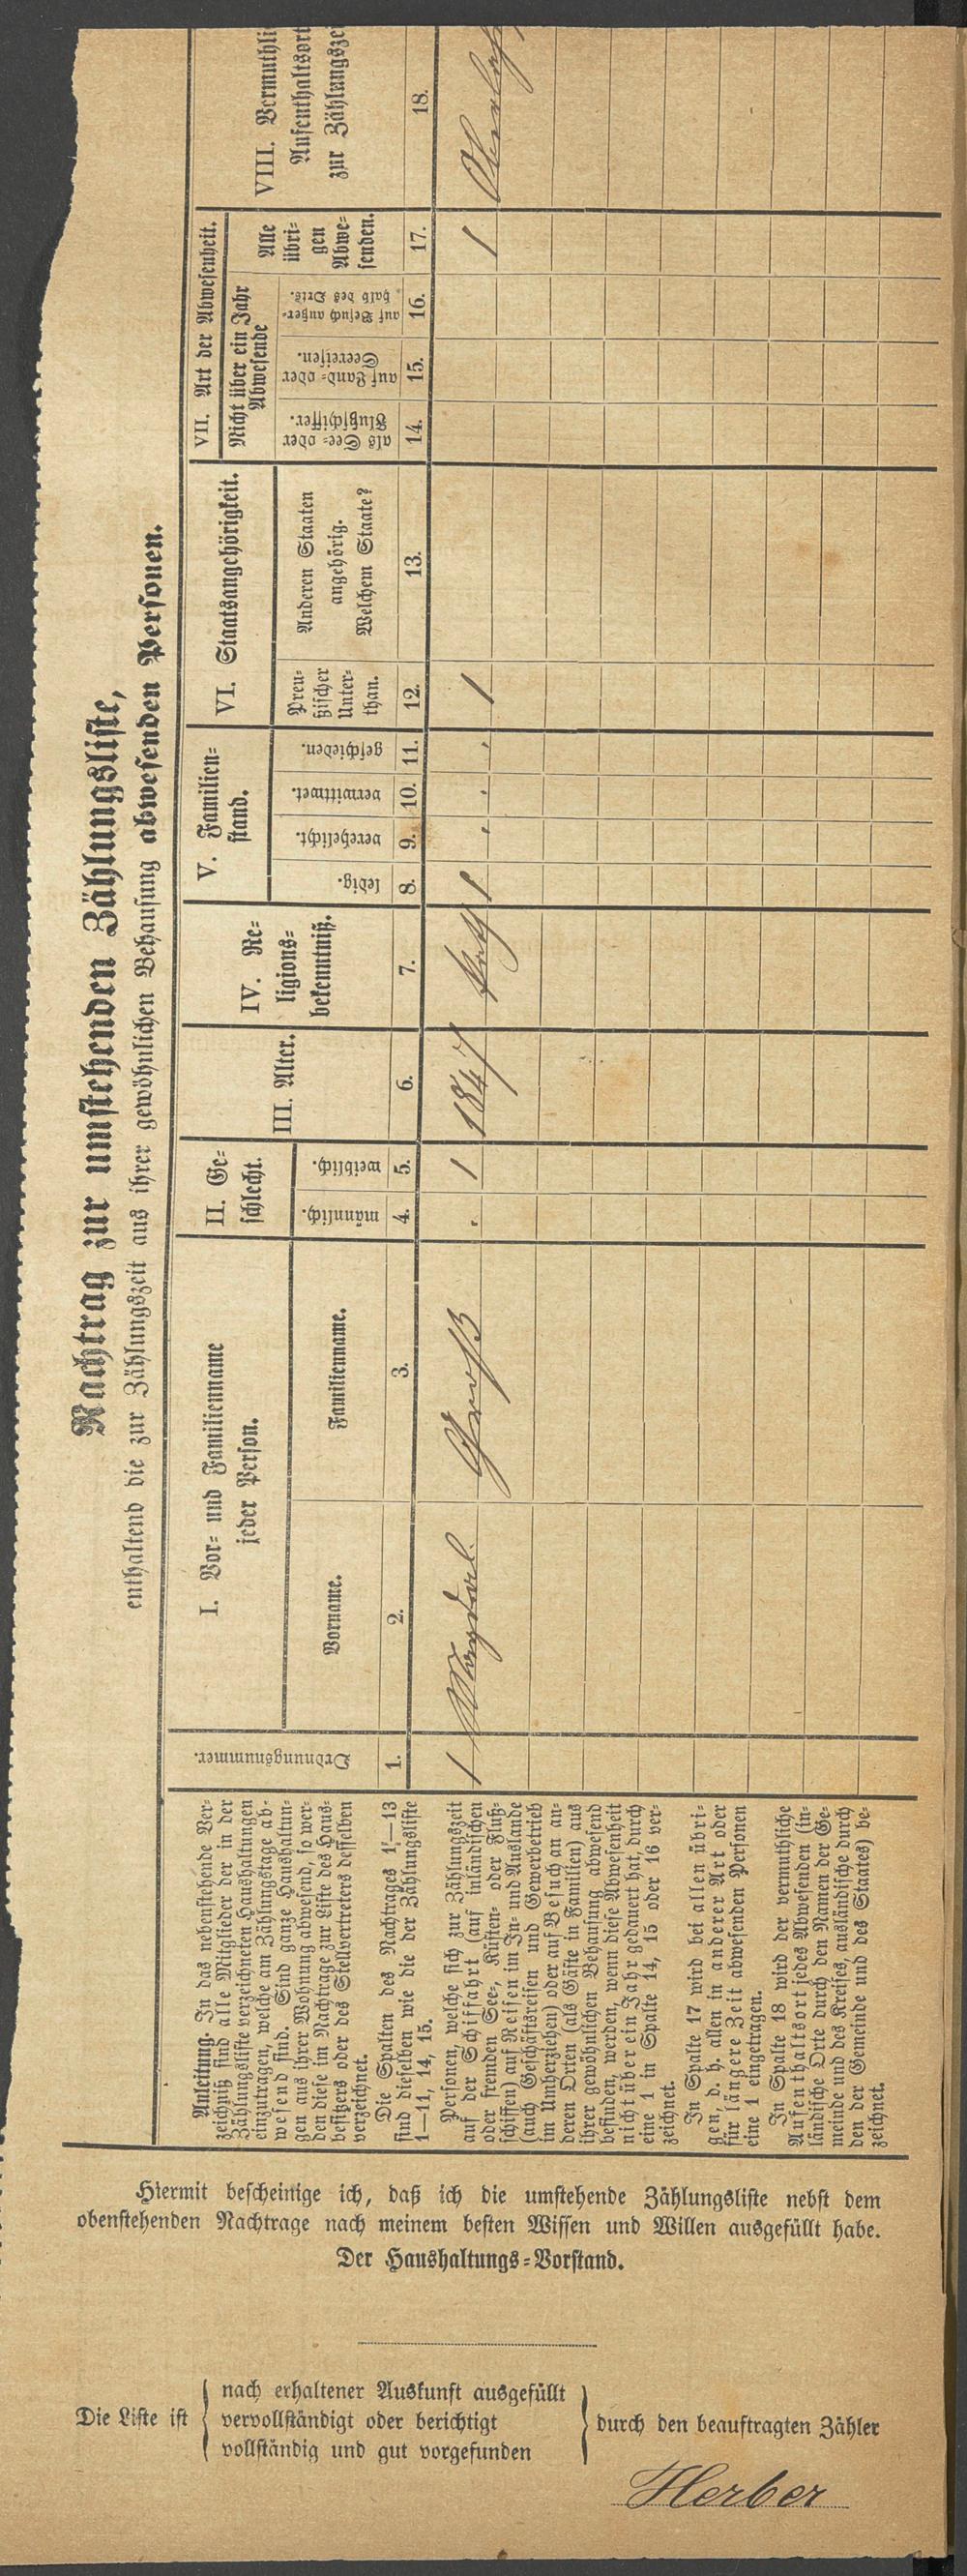 Nachtrag zur umstehenden Zählungsliste,
enthaltend die zur Zählungszeit aus ihrer gewöhnlichen Behausung abwesenden Personen.
Anleitung. In das nebenstehende Ver-
zeichniß sind alle Mitglieder der in der
Zählungsliste verzeichneten Haushaltungen
einzutragen, welche am Zählungstage ab-
wesend sind. Sind ganze Haushaltun-
gen aus ihrer Wohnung abwesend, so wer-
den diese im Nachtrage zur Liste des Haus-
besitzers oder des Stellvertreters desselben
verzeichnet.
Die Spalten des Nachtrages 1—13
sind dieselben wie die der Zählungsliste
1—11, 14, 15.
Personen, welche sich zur Zählungszeit
auf der Schiffahrt (auf inländischen
oder fremden See-, Küsten- oder Fluß-
schiffen) auf Reisen im In- und Auslande
(auch Geschäftsreisen und Gewerbetrieb
im Umherziehen) oder auf Besuch an an-
deren Orten (als Gäste in Familien) aus
ihrer gewöhnlichen Behausung abwesend
befinden, werden, wenn diese Abwesenheit
nicht über ein Jahr gedauert hat, durch
eine 1 in Spalte 14, 15 oder 16 ver-
zeichnet.
In Spalte 17 wird bei allen übri-
gen, d. h. allen in anderer Art oder
für längere Zeit abwesenden Personen
eine 1 eingetragen.
In Spalte 18 wird der vermuthliche
Aufenthaltsort jedes Abwesenden (in-
ländische Orte durch den Namen der Ge-
meinde und des Kreises, ausländische durch
den der Gemeinde und des Staates) be-
zeichnet.
Ordnungsnummer.
I. Vor- und Familienname
jeder Person.
Vorname.
Familienname.
II. Ge-
schlecht.
männlich.
weiblich.
III. Alter.
IV. Re-
ligions-
bekenntniß.
V. Familien-
stand.
ledig.
verehelicht.
verwittwet.
geschieden.
VI. Staatsangehörigkeit.
Preu-
ßischer
Unter-
than.
Anderen Staaten
angehörig.
Welchem Staate?
VII. Art der Abwesenheit.
Nicht über ein Jahr
Abwesende
als See- oder
Flußschiffer.
auf Land- oder
Seereisen.
auf Besuch außer-
halb des Orts.
Alle
übri-
gen
Abwe-
senden.
VIII. Vermuthli
Aufenthaltsort
zur Zählungsze
1. 2. 3. 4. 5. 6. 7. 8. 9. 10. 11. 12. 13. 14. 15. 16. 17. 18.
1 Magdal. Groß . 1 1847 kath 1 . . . 1 1
Hiermit bescheinige ich, daß ich die umstehende Zählungsliste nebst dem
obenstehenden Nachtrage nach meinem besten Wissen und Willen ausgefüllt habe.
Der Haushaltungs-Vorstand.
Die Liste ist
nach erhaltener Auskunft ausgefüllt
vervollständigt oder berichtigt
vollständig und gut vorgefunden
durch den beauftragten Zähler
Herber